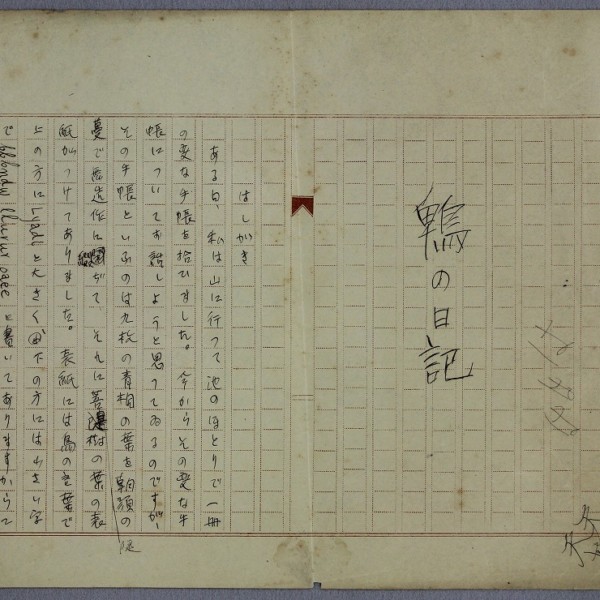 鶍の日記
はしがき
ある日、私は山に行つて池のほとりで一冊
の変な手帳を拾ひました。今からその変な手
帳についてお話しようと思つてゐるのですが、
その手帳といふのは九枚の青桐の葉を朝顔の
蔓で無造作に綴ぢて、それに菩提樹の葉の表
紙がつけてありました。表紙には鳥の言葉で
上の方に と大きく下の方には小さい字
で と書いてありますからこ